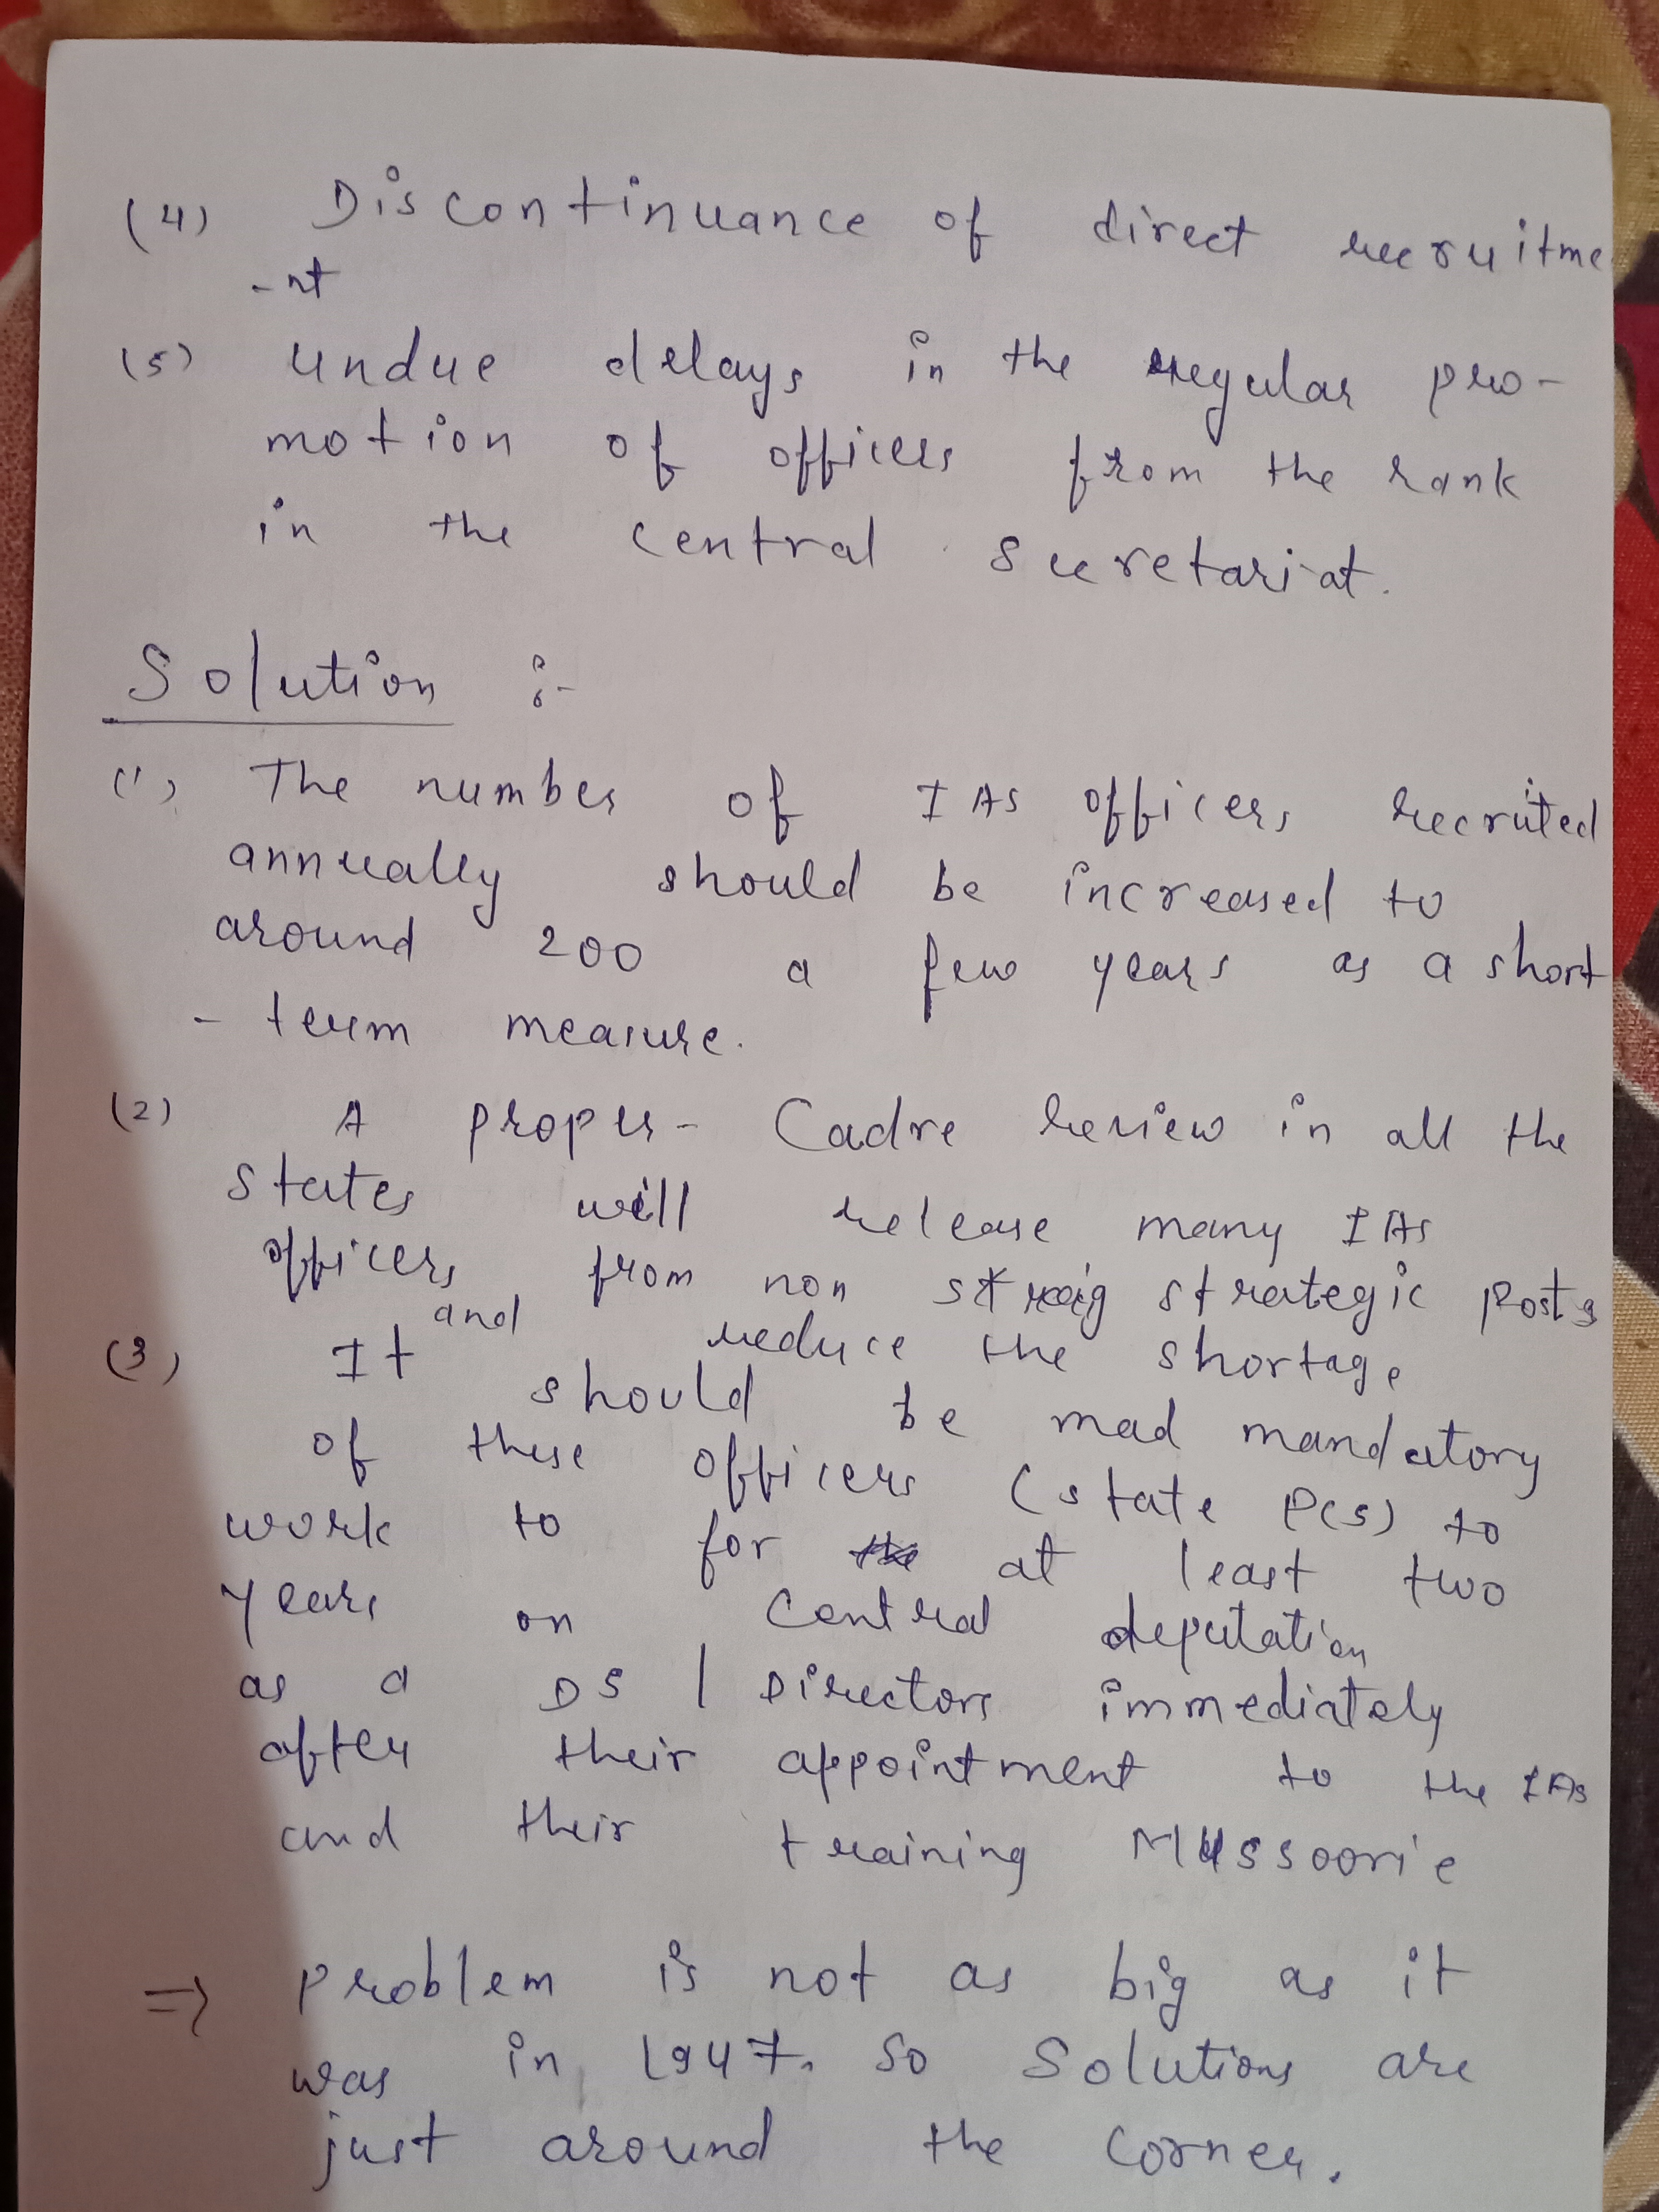 (4) Discontinuance of direct recruitme
-nt
(5) undue delays in the regular pro-
motion of officers from the rank
in the central secretariat.
Solution :-
(1) The number of IAS officers recruited
annually should be increased to
around 200 a few years as a short
- term measure.
(2) A proper - Cadre review in all the
states will release many IAS
officers from non strategic posts
and reduce the shortage
(3) It should be mad mandatory
of these officers (state PCS) to
work to for at least two
years on central deputation
as a DS / Directors immediately
after their appointment to the IAS
and their training Mussoorie
=> problem is not as big as it
was in 1947. So Solutions are
just around the corner.